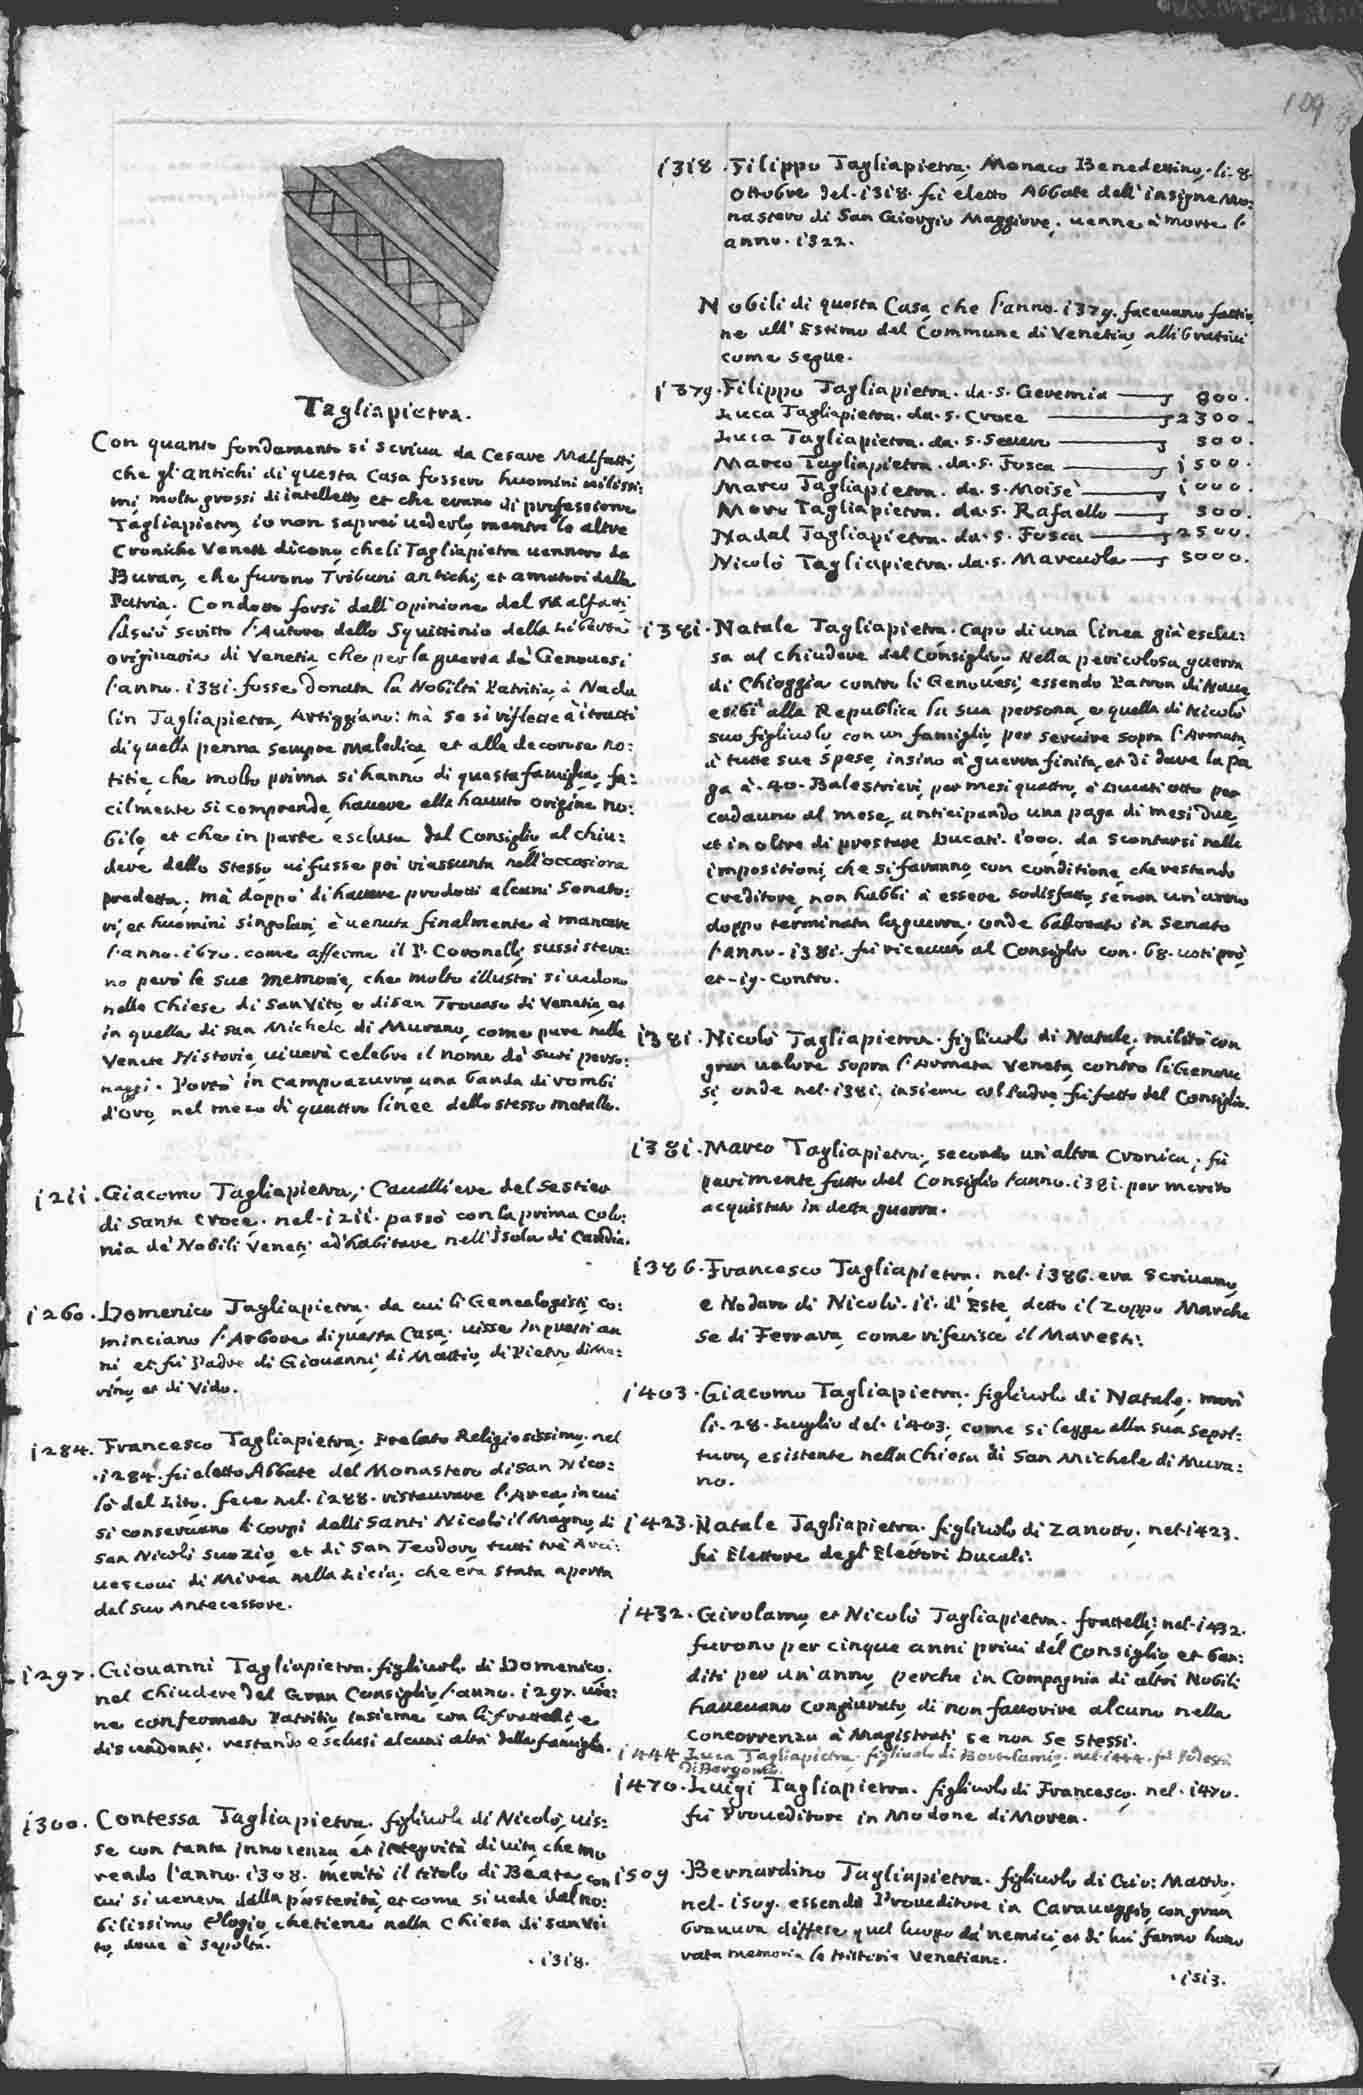 109
Tagliapietra.
Con quanto fondamento si scriva da Cesare Malfatti,
che gl'antichi di questa Casa fossero huomini vilissi:
mi, molto grossi di intelletto, et che erano di professione
Tagliapietra, io non saprei vederlo, mentre le altre
Croniche Venete dicono, che li Tagliapietra vennero da
Buran, che furono Tribuni antichi, et amatori della
Patria. Condotto forsi dall'opinione del Malfatti,
lasciò scritto l'Autore dello Squittinio della Libertà
originaria di Venetia, che per la guerra de Genovesi
l'anno. 1381. fosse donata la Nobiltà Patritia, à Nada
lin Tagliapietra, Artiggiano: mà se si riflette à i tratti
di quella penna sempre maledica, et alle decorose no:
titie, che molto prima si hanno di questa famiglia, fa:
cilmente si comprende, havere ella havuto origine no:
bile, et che in parte esclusa dal Consiglio al chiu:
dere dello stesso, vi fusse poi riassunta nell'occasione
predetta; mà doppo di havere prodotti alcuni Senato:
ri, et huomini singolari, è venuta finalmente à mancare
l'anno. 1670. come afferma il P. Coronelli; sussisteran:
no però le sue memorie, che molto illustri si vedono
nelle Chiese di San Vito, e di San Trovaso di Venetia, et
in quella di San Michele di Murano, come pure nelle
Venete Historie, viverà celebre il nome de suoi perso:
naggi. Portò in Campo azurro una banda di rombi
d'oro, nel mezo di quattro linee dello stesso metallo.
1211. Giacomo Tagliapietra, Cavalliere del Sestier
di Santa Croce. nel. 1211. passò con la prima Colo:
nia de Nobili Veneti ad'habitare nell'Isola di Candia.
1260. Domenico Tagliapietra. da cui li Genealogisti co:
minciano l'Arbore di questa Casa. visse in questi an
ni et fù Padre di Giovanni, di Mattio, di Pietro, di Ma:
rino, et di Vido.
1284. Francesco Tagliapietra. Prelato Religiosissimo. nel
. 1284. fù eletto Abbate del Monastero di San Nico:
lò del Lito. fece nel. 1288. ristaurare l'Arca in cui
si conservano li corpi delli Santi Nicolò il Magno, di
San Nicolò suo Zio, et di San Teodoro, tutti trè Arci:
vescovi di Mirea nella Licia. che era stata aperta
dal suo Antecessore.
1297. Giovanni Tagliapietra. figlivolo di Domenico.
nel chiudere del Gran Consiglio l'anno. 1297. ven:
ne confermato Patritio, insieme con li fratelli, e
discendenti. restando esclusi alcuni altri della famiglia.
1300. Contessa Tagliapietra. figlivola di Nicolò, vis:
se con tanta innocenza et integrità di vita, che mo
rendo l'anno. 1308. meritò il titolo di Beata, con
cui si venera dalla posterità, et come si vede dal no:
bilissimo Elogio, che tiene nella Chiesa di San Vi
to, dove è sepolta.
. 1318.
1318. Filippo Tagliapietra. Monaco Benedettino. li. 8.
Ottobre del. 1318. fù eletto Abbate dell'insigne Mo:
nastero di San Giorgio Maggiore. venne à morte l'
anno. 1322.
Nobili di questa Casa, che l'anno. 1379. facevano fattio
ne all'Estimo del Commune di Venetia, allibrativi
come segue.
1379. Filippo Tagliapietra. da. S. Geremia 800.
Luca Tagliapietra. da. S. Croce 2300.
Luca Tagliapietra. da. S. Severo 500.
Marco Tagliapietra. da. S. Fosca 1500.
Marco Tagliapietra. da. S. Moisè 1000.
Moro Tagliapietra. da. S. Rafaello 500.
Nadal Tagliapietra. da. S. Fosca 2500.
Nicolò Tagliapietra. da. S. Marcuola 5000.
1381. Natale Tagliapietra. Capo di una linea già esclu:
sa al chiudere del Consiglio, nella pericolosa guerra
di Chioggia contro li Genovesi, essendo Patron di Nave
esibì alla Republica la sua persona, e quella di Nicolò
suo figlivolo, con un famiglio, per servire sopra l'Armata,
à tutte sue spese, insino à guerra finita, et di dare la pa
ga à. 40. Balestrieri, per mesi quattro, à Ducati otto per
cadauno al mese, anticipando una paga di mesi due,
et in oltre di prestare Ducati. 1000. da scontarsi nelle
impositioni, che si faranno, con conditione, che restando
Creditore, non habbi à essere sodisfatto, se non un'anno
doppo terminata la guerra. onde balotato in Senato
l'anno. 1381. fù ricevuto al Consiglio con. 68. voti prò,
et. 19. contro.
1381. Nicolò Tagliapietra. figlivolo di Natale. militò con
gran valore sopra l'Armata Veneta, contro li Genove
si, onde nel. 1381. insieme col Padre, fù fatto del Consiglio.
1381. Marco Tagliapietra, secondo un'altra Cronica, fù
parimente fatto del Consiglio l'anno. 1381. per merito
acquistato in detta guerra.
1386. Francesco Tagliapietra. nel. 1386. era Scrivano,
e Nodaro di Nicolò. II. d'Este, detto il Zoppo, Marche
se di Ferrara, come riferisce il Maresti.
1403. Giacomo Tagliapietra. figlivolo di Natale. morì
li. 28. Luglio del. 1403. come si legge alla sua sepol:
tura, esistente nella Chiesa di San Michele di Mura:
no.
1423. Natale Tagliapietra. figlivolo di Zanotto. nel. 1423.
fù Elettore degl'Elettori Ducali.
1432. Girolamo, et Nicolò Tagliapietra. fratelli; nel. 1432.
furono per cinque anni privi del Consiglio, et ban:
diti per un'anno, perche in Compagnia di altri Nobili
havevano congiurato, di non favorire alcuno nella
concorrenza à Magistrati, se non se stessi.
1444. Luca Tagliapietra. figlivolo di Bortolamio. nel. 1444. fù Podestà
di Bergomo.
1470. Luigi Tagliapietra. figlivolo di Francesco. nel. 1470.
fù Proveditore in Modone di Morea.
1509. Bernardino Tagliapietra. figlivolo di Gio: Mattio.
nel. 1509. essendo Proveditore in Caravaggio, con gran
bravura diffese quel luogo da nemici, et di lui fanno hono
rata memoria le Historie Venetiane.
. 1513.